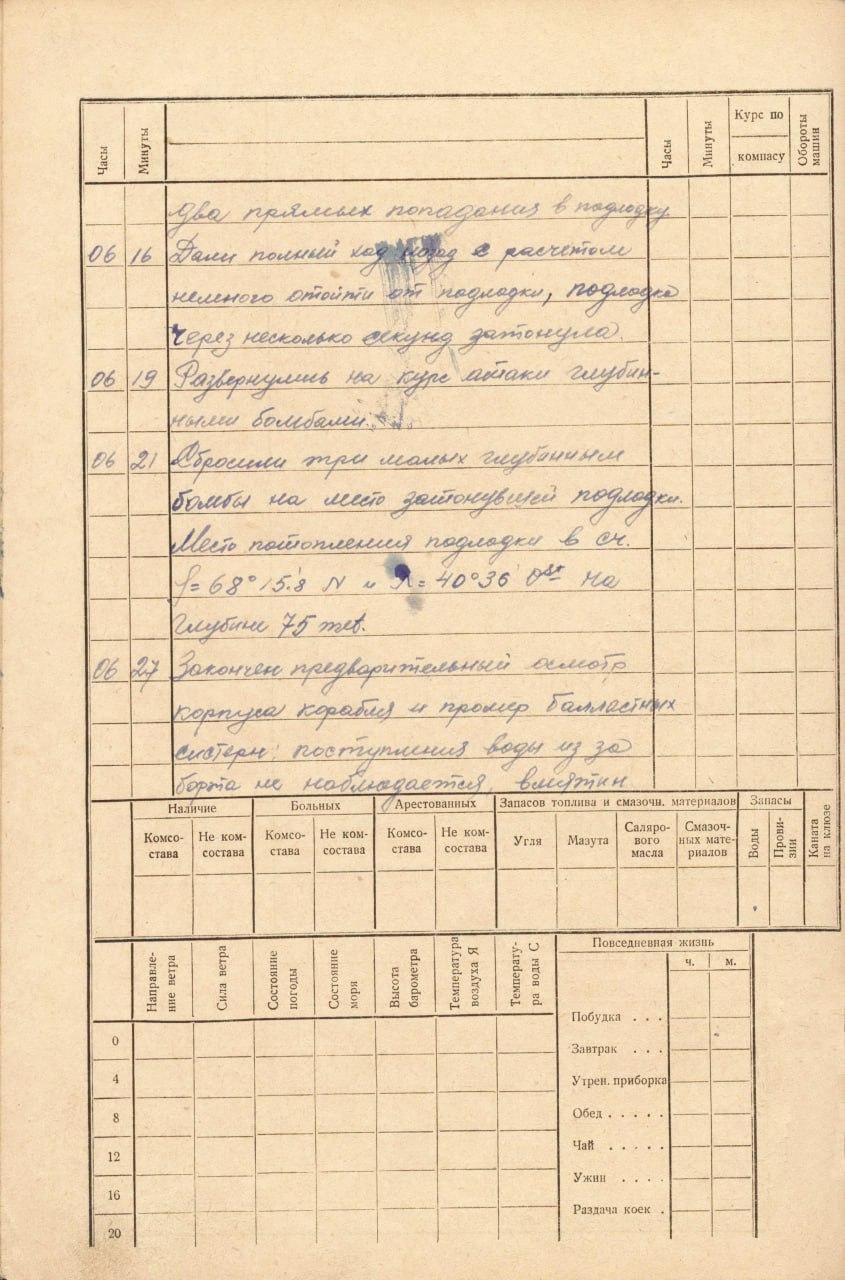 Часы Минуты Часы Минуты Курс по компасу Обороты машин
два прямых попадания в подлодку
06 16 Дали полный ход назад с расчетом
немного отойти от подлодки, подлодка
через несколько секунд затонула.
06 19 Развернулись на курс атаки глубин-
ными бомбами.
06 21 Сбросили три малых глубинных
бомбы на место затонувшей подлодки.
Место потопления подлодки в сч.
φ= 68° 15.'8 N и λ= 40°36' Ost на
глубине 75 met.
06 27 Закончен предварительный осмотр
корпуса корабля и промер балластных
систерн: поступления воды из за
борта не наблюдается, вмятин
Наличие Больных Арестованных Запасов топлива и смазочн. материалов Запасы Каната на клюзе
Комсо-става Не ком-состава Комсо-става Не ком-состава Комсо-става Не ком-состава Угля Мазута Саляро-вого масла Смазоч-ных мате-риалов Воды Прови-зии
Направле-ние ветра Сила ветра Состояние погоды Состояние моря Высота барометра Температура воздуха Я Температу-ра воды С Повседневная жизнь
ч. м.
0 Побудка . . .
Завтрак . . .
4 Утрен. приборка
8 Обед . . . . .
12 Чай . . . . .
16 Ужин . . . .
Раздача коек .
20